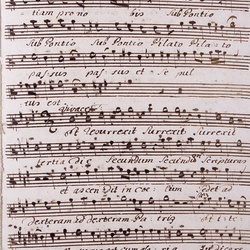 tiam pro no bis sub Pontio
Sub Pontio Sub Pontio Pilato Pilato
passus passus et Sepul
tus est Vivace
Et resurrexit Surrexit Surrexit
tertia die Secundum Secundum Scripturas
et ascendit in coelum Sedet ad
dexteram ad dexteram Patris